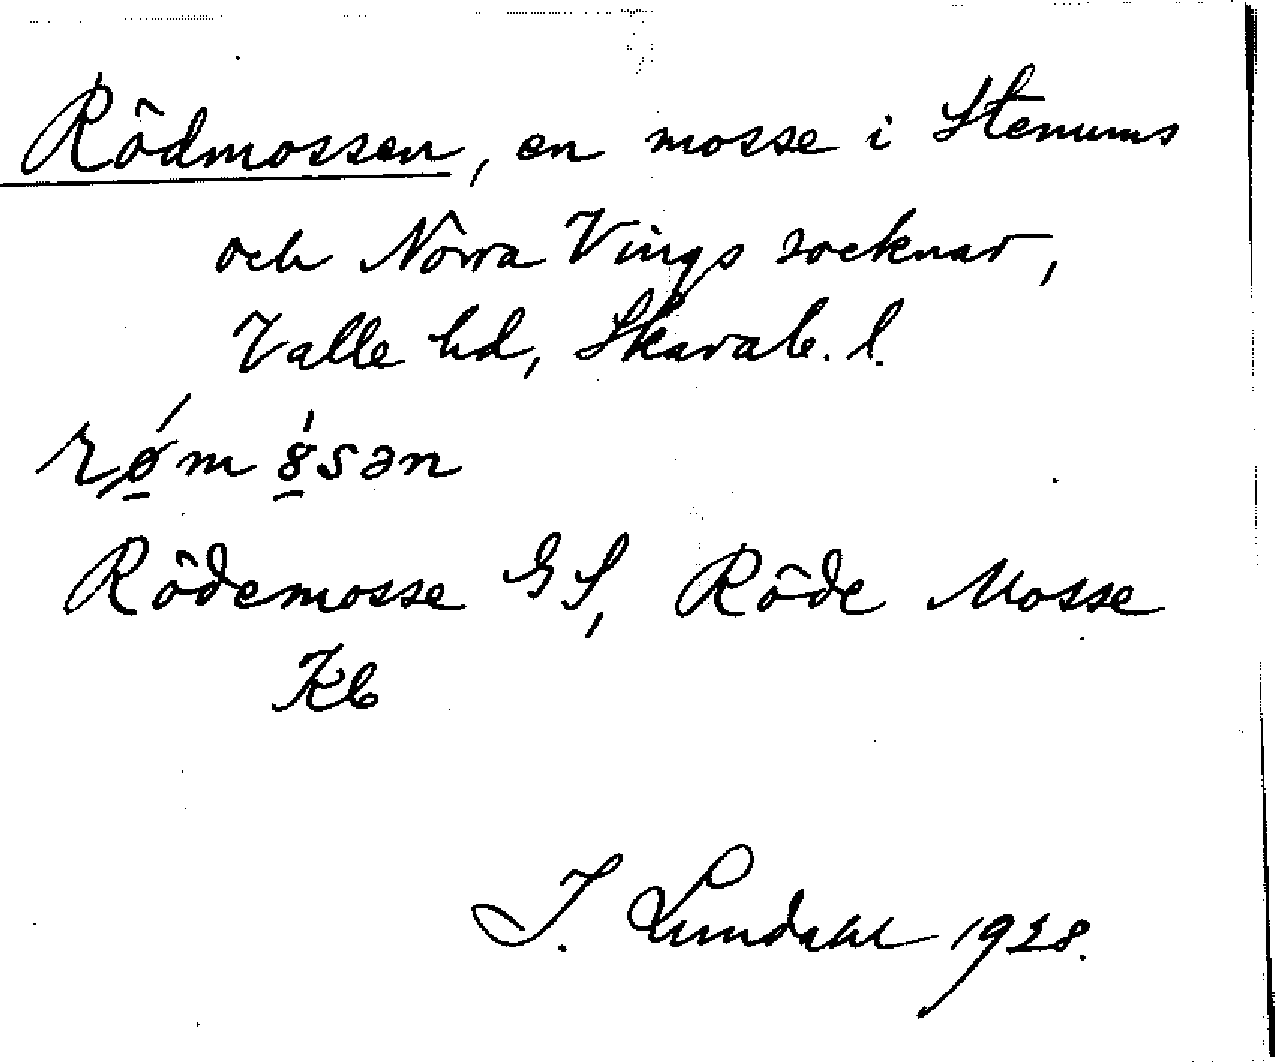 Rödmossen, en mosse i Stenums
och Norra Vings socknar,
Valle hd, Skarab. l.
rǿ̠m 8̠́sən
Rödemosse GS, Röde Mosse
Kb
I. Lundahl 1928.